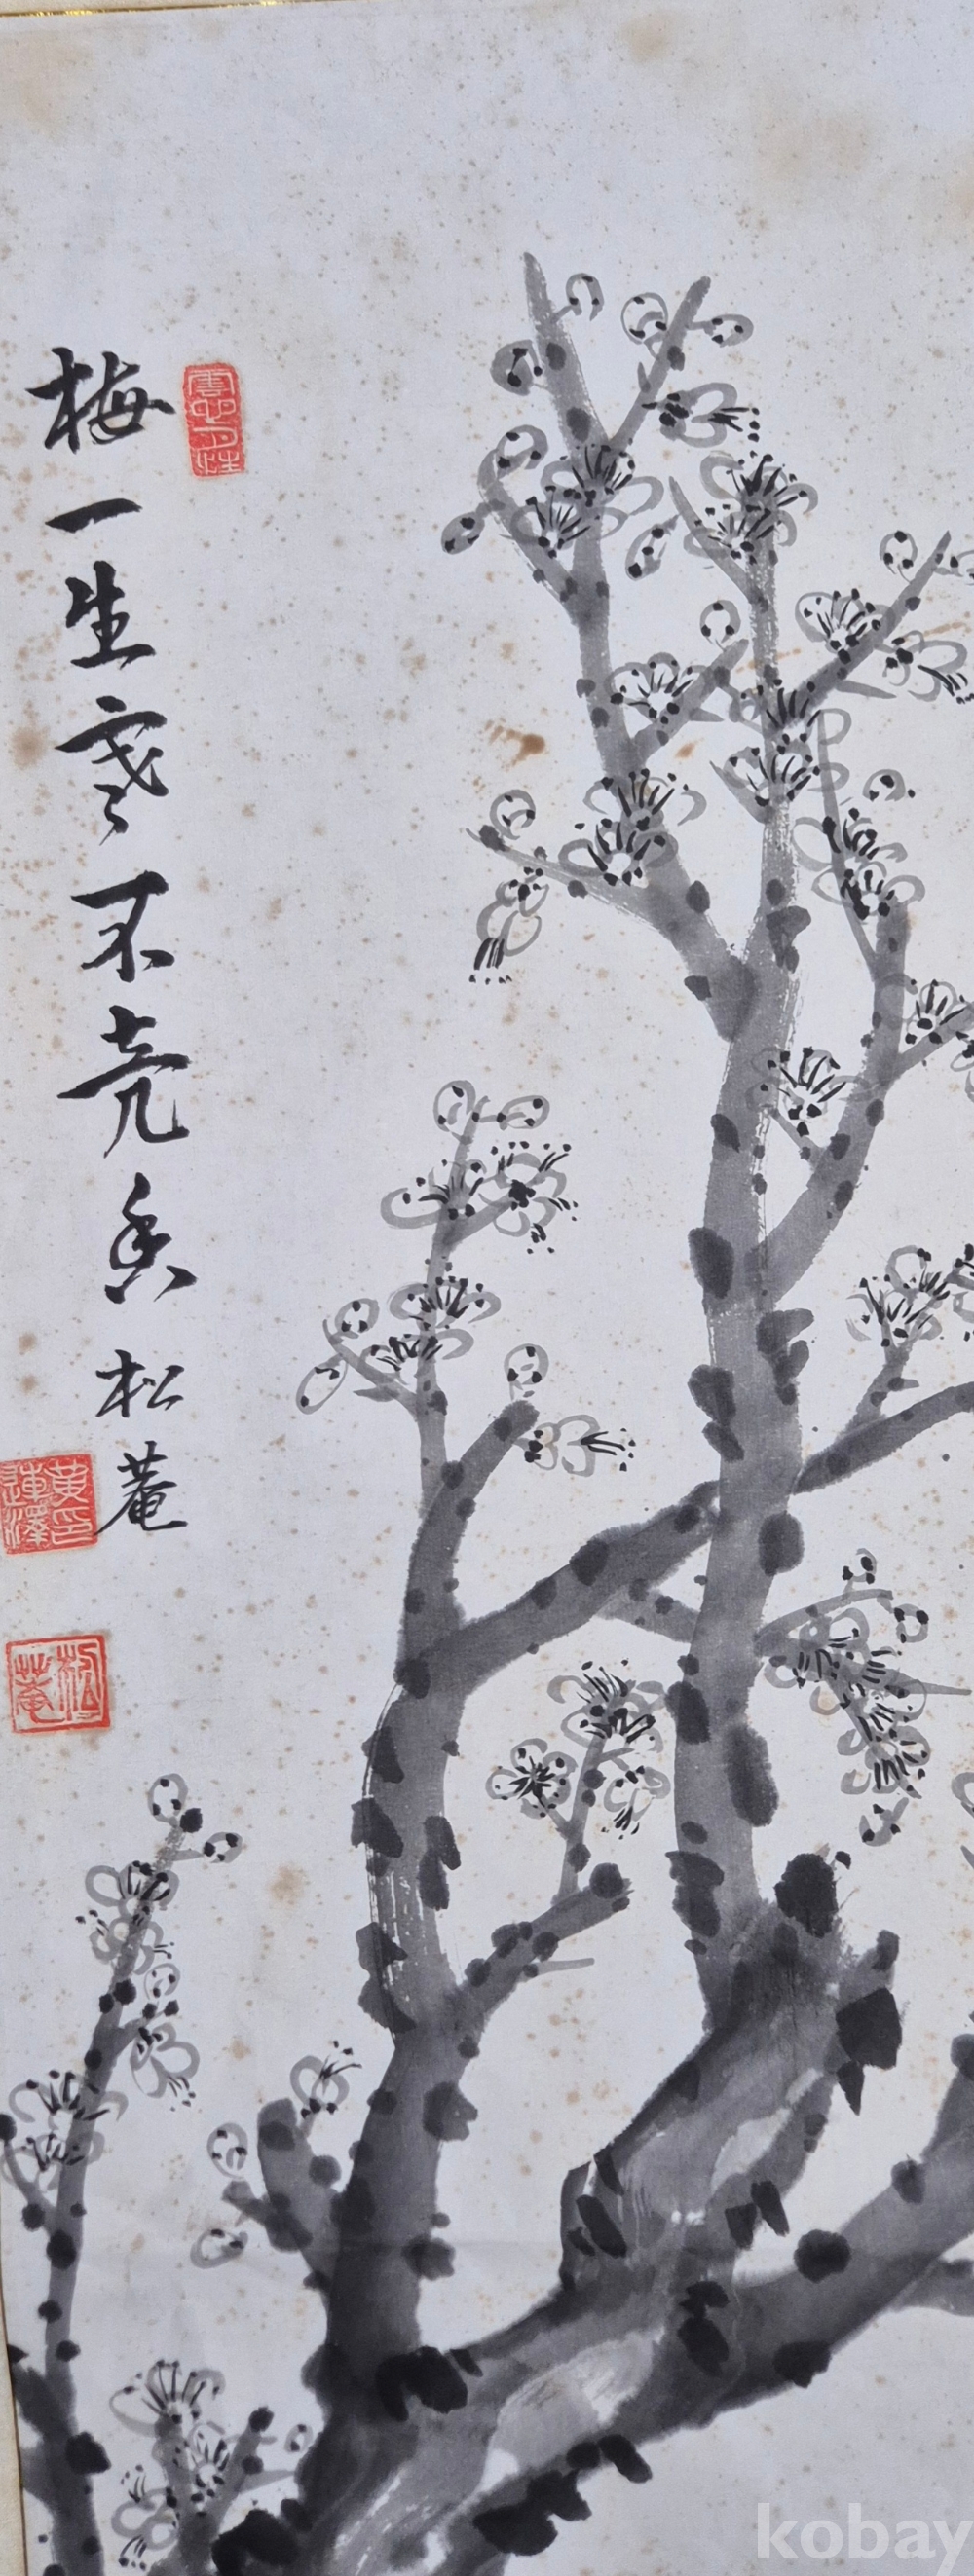 梅一生寒不売香 松菴
黄連澤印
松菴
kobay